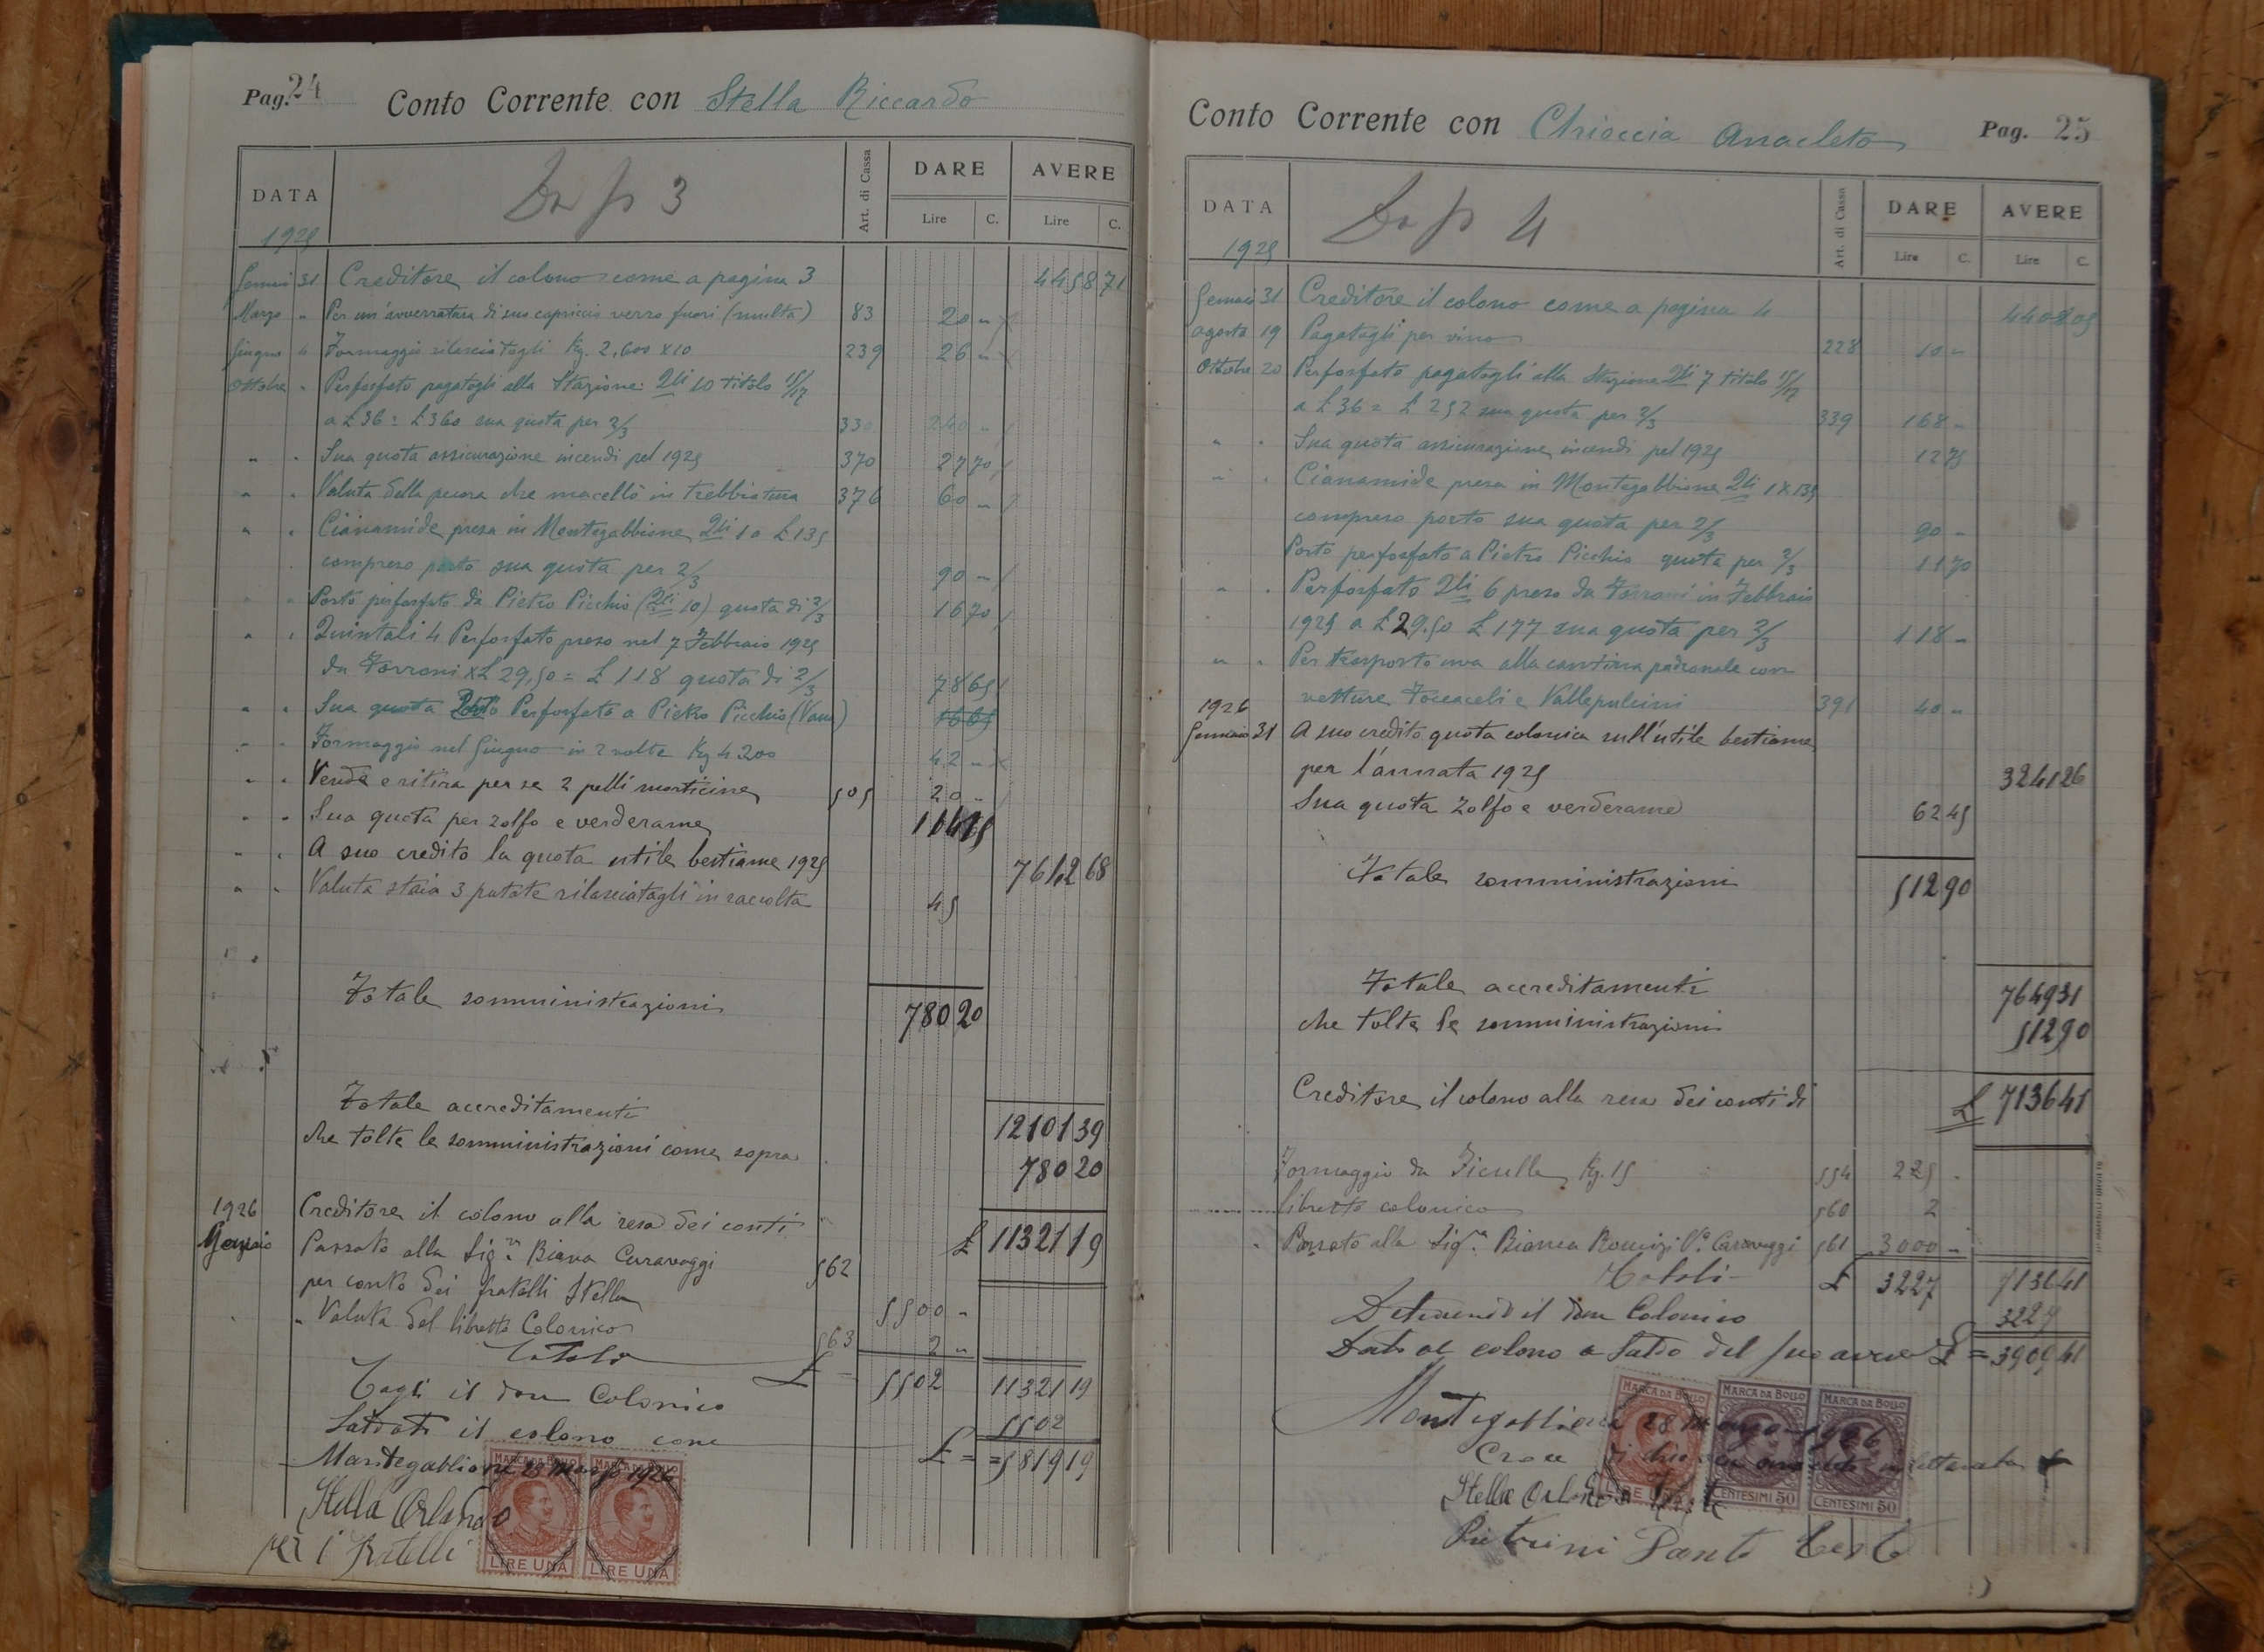 Pag. 24 Conto Corrente con Stella Riccardo
DATA Da p 3 Art. di Cassa DARE AVERE
Lire C. Lire C.
1925
Gennaio 31 Creditore il colono come a pagina 3 4458 71
Marzo " Per un'avverratura di suo capriccio verro fuori (multa) 83 20 "
Giugno 4 Formaggio rilasciatogli Kg. 2,600 x 10 239 26 "
Ottobre " Perfosfato pagatogli alla Stazione: Qli 10 titolo 15/17
a £ 36 = £ 360 sua quota per 2/3 330 240 "
" " Sua quota assicurazione incendi pel 1925 370 27 70
" " Valuta della pecora che macellò in trebbiatura 376 60 "
" " Cianamide presa in Montegabbione Qli 1 a £ 135
compreso porto sua quota per 2/3 90 "
" " Porto perfosfato da Pietro Picchio (Qli 10) quota di 2/3 16 70
" " Quintali 4 Perfosfato preso nel 7 Febbraio 1925
da Forroni x £ 29,50 = £ 118 quota di 2/3 78 65
" " Sua quota Porto Perfosfato a Pietro Picchio 16 65
" " Formaggio nel Giugno in 2 volte Kg 4200 42 "
" " Vende e ritira per se 2 pelli morticine 505 20 "
" " Sua quota per zolfo e verderame 114 15
" " A suo credito la quota utile bestiame 1925 7642 68
" " Valuta staia 3 patate rilasciatagli in raccolta 45
Totale somministrazioni 780 20
Totale accreditamenti 12101 39
che tolte le somministrazioni come sopra 780 20
1926 Creditore il colono alla resa dei conti £ 11321 19
Gennaio Passato alla Sig.ra Biana Caravaggi 562
per conto dei fratelli Stella 5500 "
" Valuta del libretto Colonico 563 2 "
Totali £ 5502 11321 19
Tagli il dare Colonico 5502
Saldato il colono come £ = 5819 19
Montegabbione 28 Marzo 1926
Stella Orlando
per i Fratelli
MARCA DA BOLLO MARCA DA BOLLO
LIRE UNA LIRE UNA
Conto Corrente con Chioccia Anacleto Pag. 25
DATA Da p 4 Art. di Cassa DARE AVERE
Lire C. Lire C.
1925
Gennaio 31 Creditore il colono come a pagina 4 4408 05
Agosto 19 Pagatogli per vino 228 10 "
Ottobre 20 Perfosfato pagatogli alla Stazione Qli 7 titolo 15/17
a £ 36 = £ 252 sua quota per 2/3 339 168 "
" " Sua quota assicurazione incendi pel 1925 12 75
" " Cianamide presa in Montegabbione Qli 1 x 135
compreso porto sua quota per 2/3 90 "
Porto perfosfato a Pietro Picchio quota per 2/3 11 70
" " Perfosfato Qli 6 preso da Forroni in Febbraio
1925 a £ 29.50 £ 177 sua quota per 2/3 118 "
" " Per trasporto uva alla cantina padronale con
vetture Focaceli e Vallepulcini 391 40 "
1926
Gennaio 31 A suo credito quota colonica sull'utile bestiame
per l'annata 1925 3241 26
Sua quota zolfo e verderame 62 45
Totale somministrazioni 512 90
Totale accreditamenti 7649 31
che tolte le somministrazioni 512 90
Creditore il colono alla resa dei conti di £ 7136 41
Formaggio da Ficulle Kg. 15 554 225 "
libretto colonico 560 2
" Passato alla Sig.ra Bianca Romizi V.a Caravaggi 561 3000 "
Totali £ 3227 7136 41
Detraendo il dare Colonico 3227
Dato al colono a saldo del suo avere £ = 3909 41
Montegabbione 28 Marzo 1926
Croce di Chioccia Anacleto illetterato +
Stella Orlando Teste
Pietrini Sante Teste
MARCA DA BOLLO MARCA DA BOLLO MARCA DA BOLLO
LIRE UNA CENTESIMI 50 CENTESIMI 50